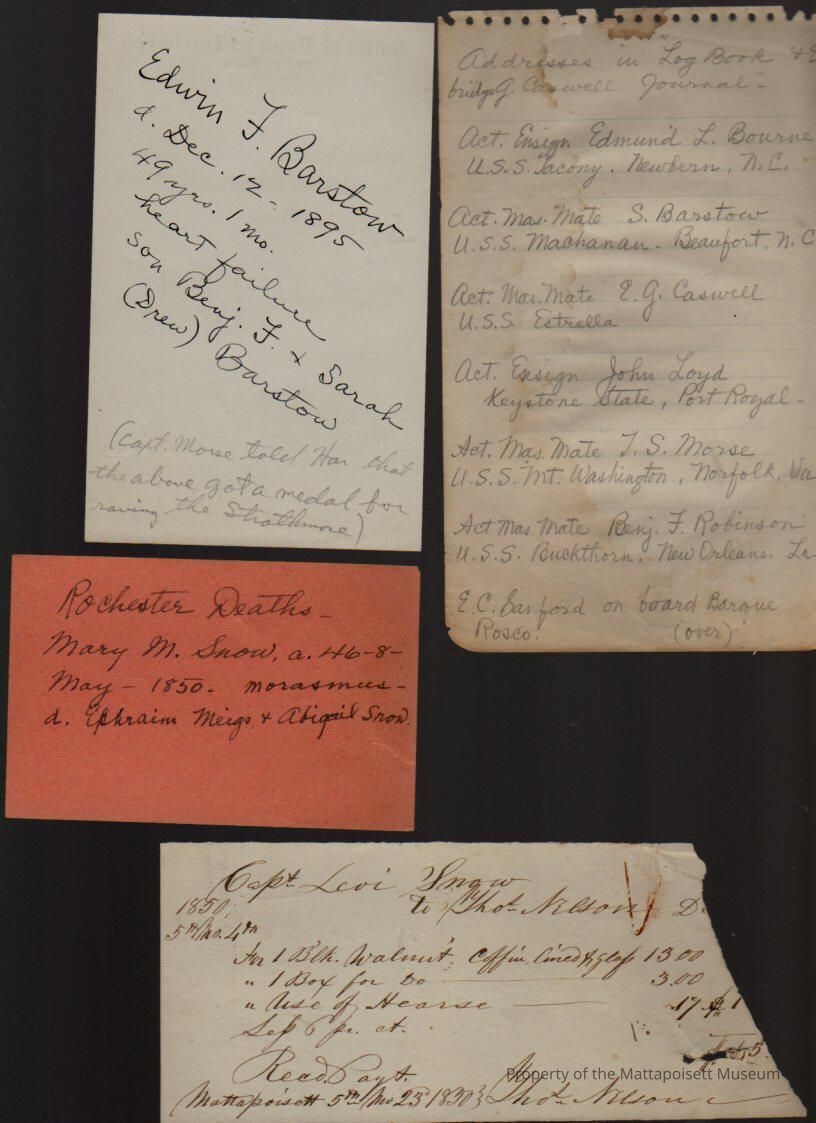 Edwin F. Barstow
d. Dec. 12 - 1895
49 yrs. 1 mo.
heart failure
son Benj. F. + Sarah
(Drew) Barstow
(Capt. Morse told Har. that
the above got a medal for
saving the Strathmore)
Addresses in "Log Book + E
bridge G. Caswell Journal" -
Act. Ensign Edmund L. Bourne
U.S.S. Tacony, Newbern, N.C.
Act. Mas. Mate S. Barstow
U.S.S. Machanan - Beaufort, N.C
Act. Mas. Mate E. G. Caswell
U.S.S. Estrella
Act. Ensign John Loyd
Keystone State, Port Royal -
Act. Mas. Mate T. S. Morse
U.S.S. Mt. Washington, Norfolk, Va
Act Mas Mate Benj. F. Robinson
U.S.S. Buckthorn, New Orleans, La.
E.C. Sanford on board Barque
Rosco. (over)
Rochester Deaths -
Mary M. Snow, a. 46-8-
May - 1850. morasmus -
d. Ephraim Meigs + Abigail Snow.
Capt Levi Snow
1850 To Thos. Nelson D
5th Mo. 4th
For 1 Blk. Walnut Coffin, lined & glass 13.00
" 1 Box for Do 3.00
" Use of Hearse 1
Less 6 pr. ct.
Recd. Payt.
Mattapoisett 5th Mo 23d 1850 Thos. Nelson
Property of the Mattapoisett Museum